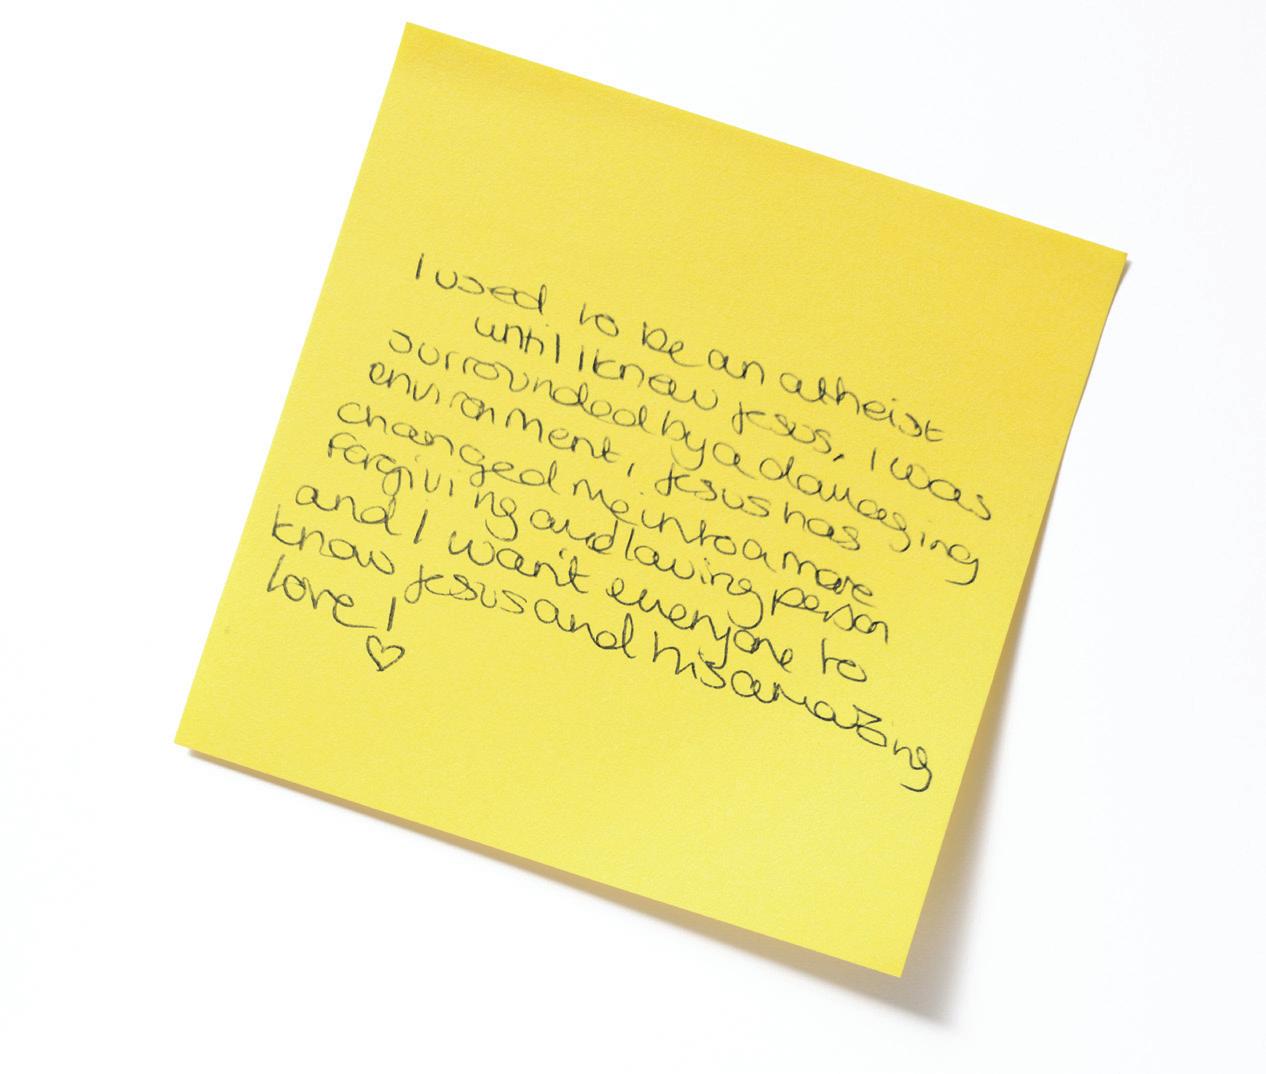 I used to be an atheist
until I know Jesus, I was
surrounded by a damaging
environment, Jesus has
changed me into a more
forgiving and loving person
and I want everyone to
know Jesus and his amazing
love! ♡